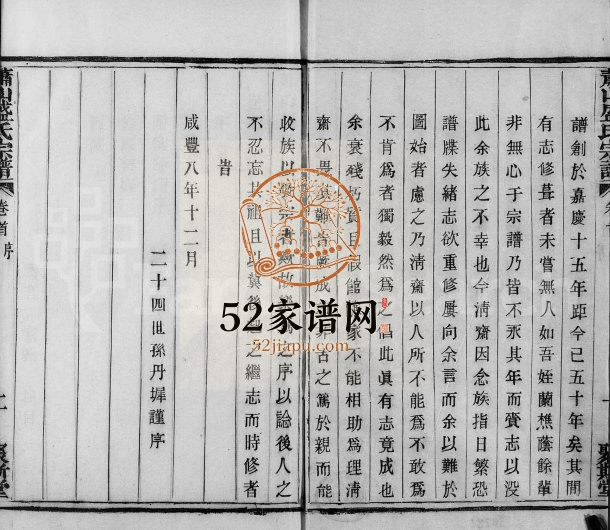 譜創於嘉慶十五年距今已五十年矣其間
有志修葺者未嘗無人如吾姪蘭樵蔭餘輩
非無心于宗譜乃皆不永其年而賫志以没
此余族之不幸也今淸齋因念族指日繁恐
譜牒失緒志欲重修屢向余言而余以難於
圖始者慮之乃淸齋以人所不能爲不敢爲
不肯爲者獨毅然爲之倡此眞有志竟成也
余衰殘朽質且假館家不能相助爲理淸
齋不畏難肯成古之篤於親而能
收族以宗者故之序以諗後人之
不忍忘其祖且以冀後之繼志而時修者
旹
咸豐八年十二月
二十四世孫丹墀謹序
蕭山盛氏宗譜
卷首 序
二
裒斯堂
52家谱网
52jiapu.com